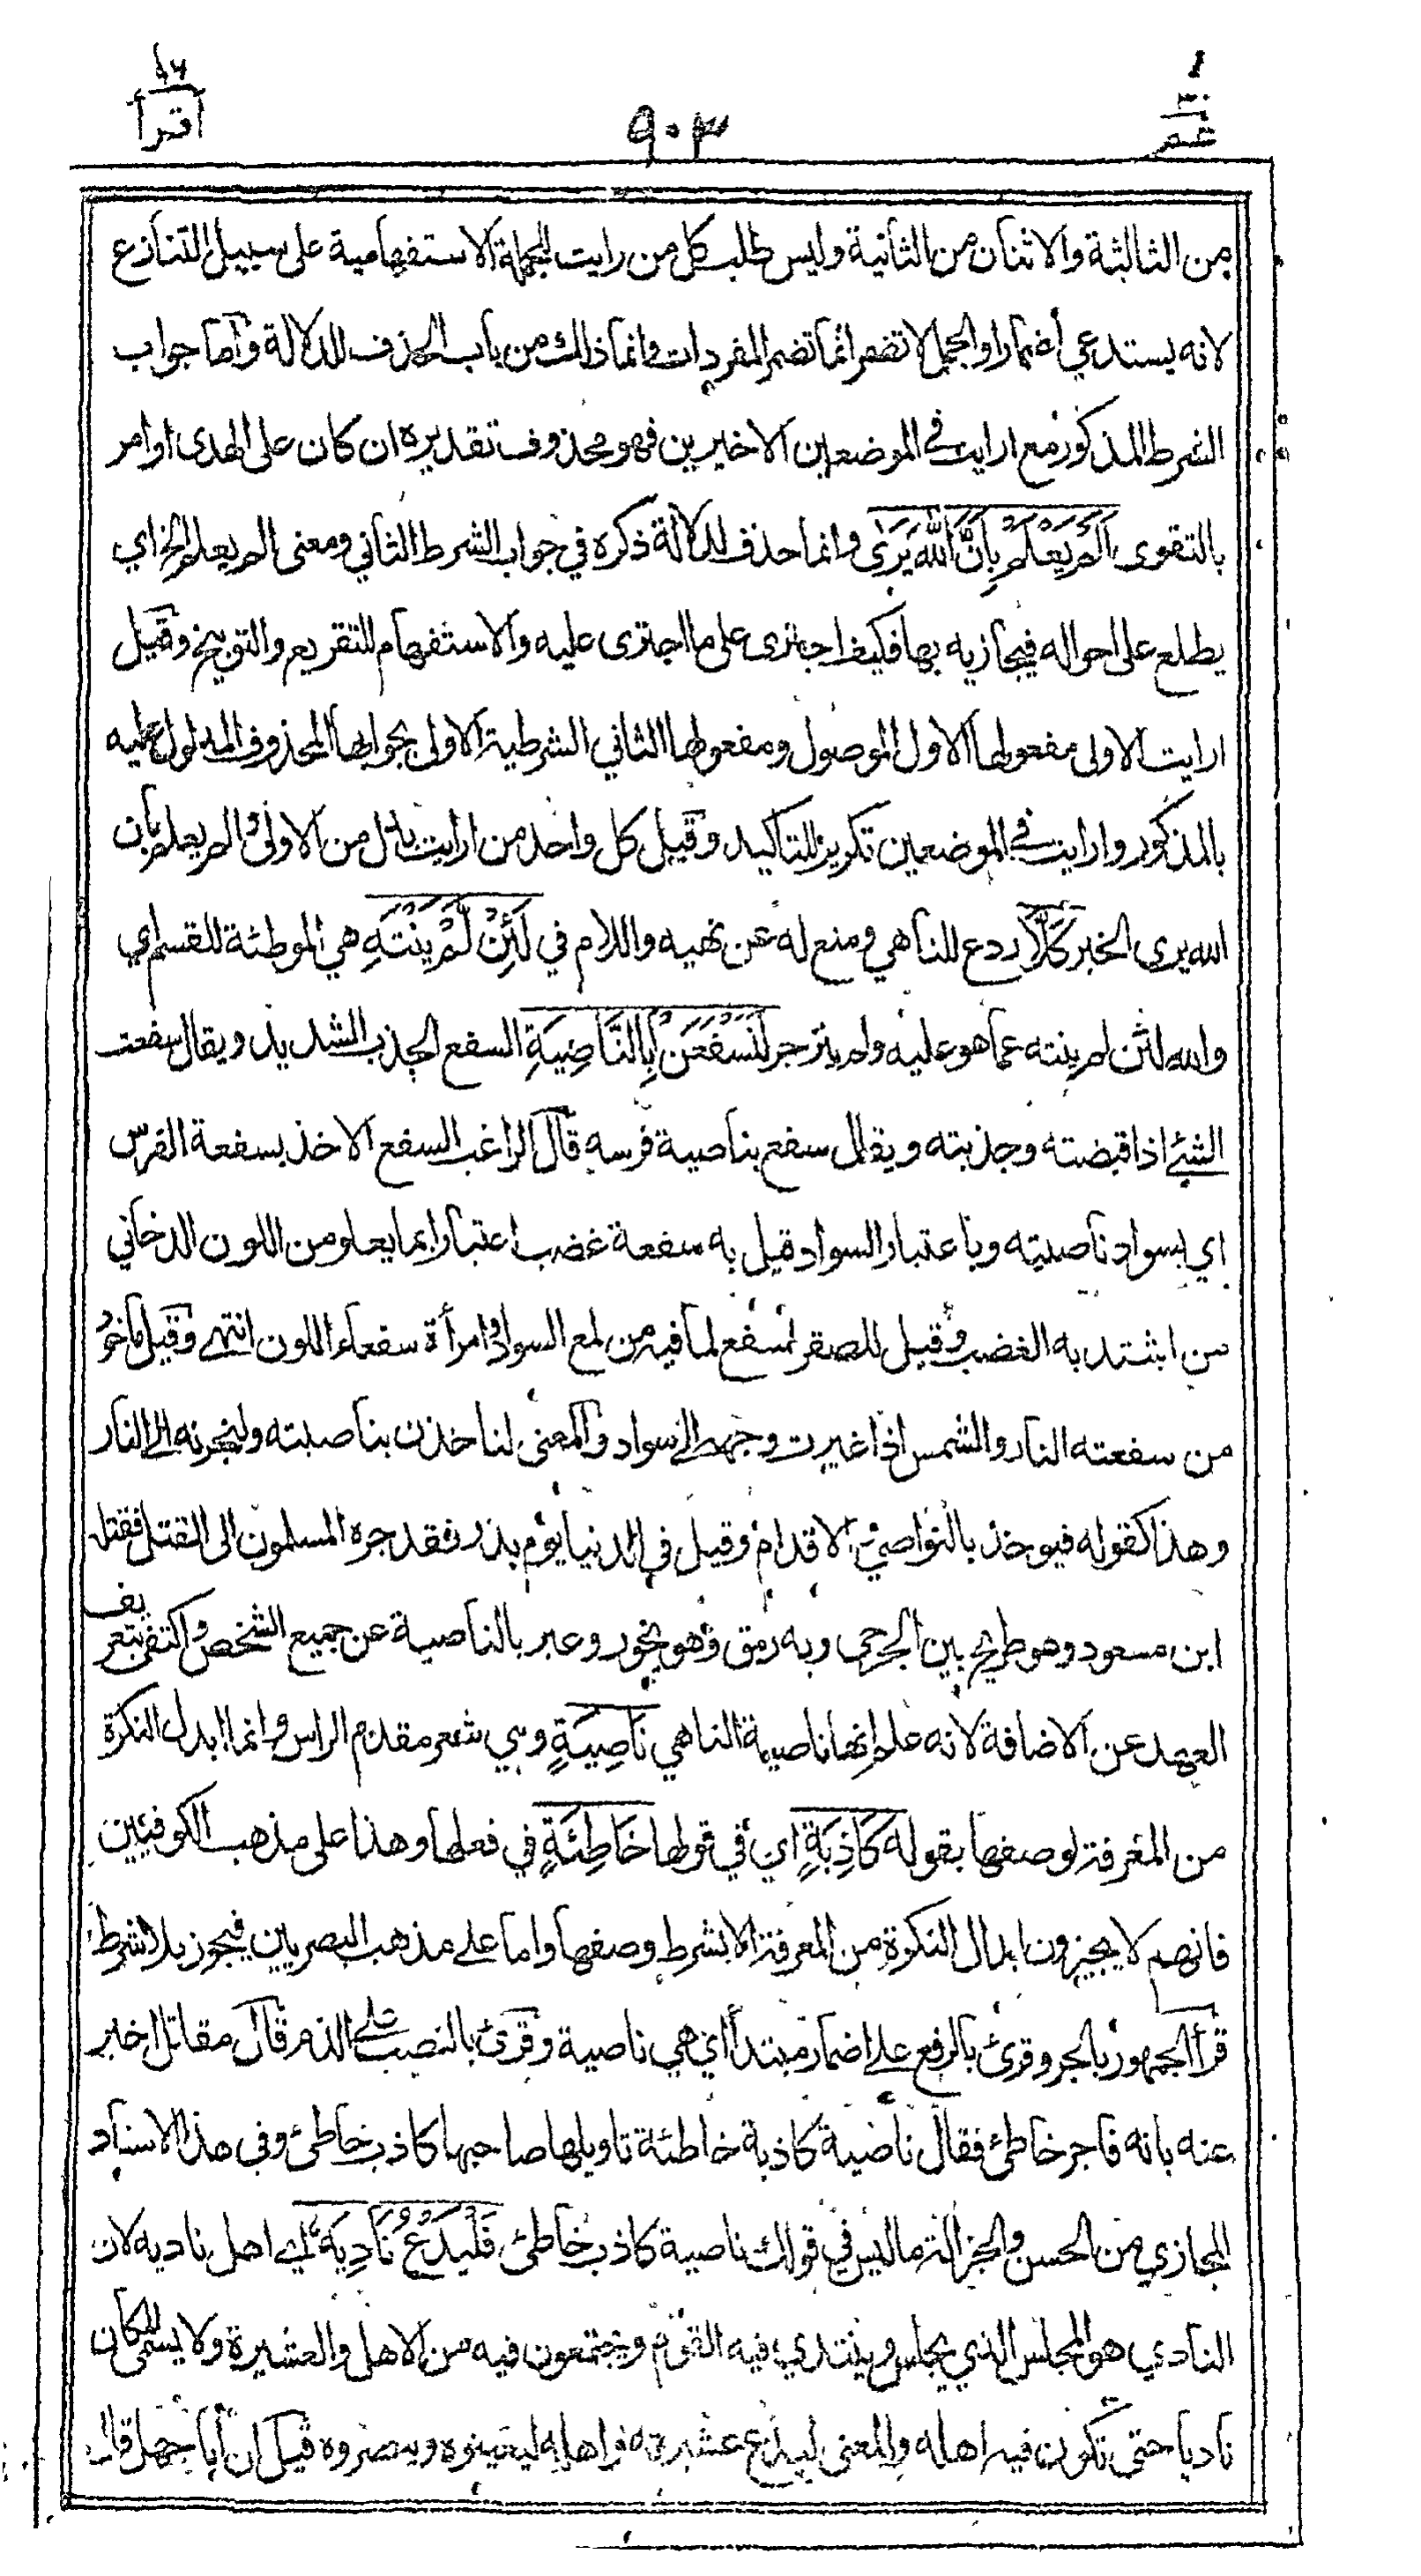 ٩٦
اقرأ
٩٠٣
٣٠
عم
من الثالثة والاثنان من الثانية وليس طلب كل من رايت للجملة الاستفهامية على سبيل التنازع
لانه يستدعي اضمارا والجمل لا تضمر انما تضمر المفردات وانما ذلك من باب الحذف للدلالة وأما جواب
الشرط المذكور مع ارايت في الموضعين الاخيرين فهو محذوف تقديره ان كان على الهدى او امر
بالتقوى اَلَمْ يَعْلَمْ بِأَنَّ اللهَ يَرَى وانما حذف لدلالة ذكره في جواب الشرط الثاني ومعنى الم يعلم الخ اي
يطلع على احواله فيجازيه بها فكيف اجترى على ما اجترى عليه والاستفهام للتقريع والتوبيخ وقيل
ارايت الاولى مفعولها الاول الموصول ومفعولها الثاني الشرطية الاولى بجوابها المحذوف المدلول عليه
بالمذكور وارايت في الموضعين تكرير للتاكيد وقيل كل واحد من ارايت بدل من الاولى والم يعلم بأن
الله يرى الخبر كَلَّا ردع للناهي ومنع له عن نهيه واللام في لَئِنْ لَمْ يَنْتَهِ هي الموطئة للقسم اي
والله لئن لم ينته عما هو عليه ولم ينزجر لَنَسْفَعَنْ بِالنَّاصِيَةِ السفع الجذب الشديد ويقال سفعت
الشئ اذا قبضته وجذبته ويقال سفع بناصية فرسه قال الراغب السفع الاخذ بسفعة الفرس
اي بسواد ناصيته وباعتبار السواد قيل به سفعة غضب اعتبارا بما يعلو من اللون الدخاني
من اشتد به الغضب وقيل للصقر اسفع لما فيه من لمع السواد وامرأة سفعاء اللون انتهى وقيل ماخوذ
من سفعته النار والشمس اذا غيرت وجهه الى سواد والمعنى لناخذن بناصيته ولنجرنه الى النار
وهذا كقوله فيوخذ بالنواصي والاقدام وقيل في الدنيا يوم بدر فقد جره المسلمون الى القتل فقتله
ابن مسعود وهو طريح بين الجرحى وبه رمق وهو يخور وعبر بالناصية عن جميع الشخص واكتفى بتعريف
العهد عن الاضافة لانه علم انها ناصية الناهي نَاصِيَةٍ وهي شعر مقدم الراس وانما ابدل النكرة
من المعرفة لوصفها بقوله كَاذِبَةٍ اي في قولها خَاطِئَةٍ في فعلها وهذا على مذهب الكوفيين
فانهم لا يجيزون ابدال النكرة من المعرفة الا بشرط وصفها واما على مذهب البصريين فيجوز بلا شرط
قرأ الجمهور بالجر وقرئ بالرفع على اضمار مبتدأ اي هي ناصية وقرئ بالنصب على الذم قال مقاتل اخبر
عنه بانه فاجر خاطئ فقال ناصية كاذبة خاطئة تاويلها صاحبها كاذب خاطئ وفي هذا الاسناد
المجازي من الحسن والجزالة ما ليس في قولك ناصية كاذب خاطئ فَلْيَدْعُ نَادِيَهُ اي اهل ناديه لان
النادي هو المجلس الذي يجلس وينتدي فيه القوم ويجتمعون فيه من الاهل والعشيرة ولا يسمى المكان
ناديا حتى تكون فيه اهله والمعنى ليدع عشيرته واهله ليعينوه وينصروه قيل ان أبا جهل قال